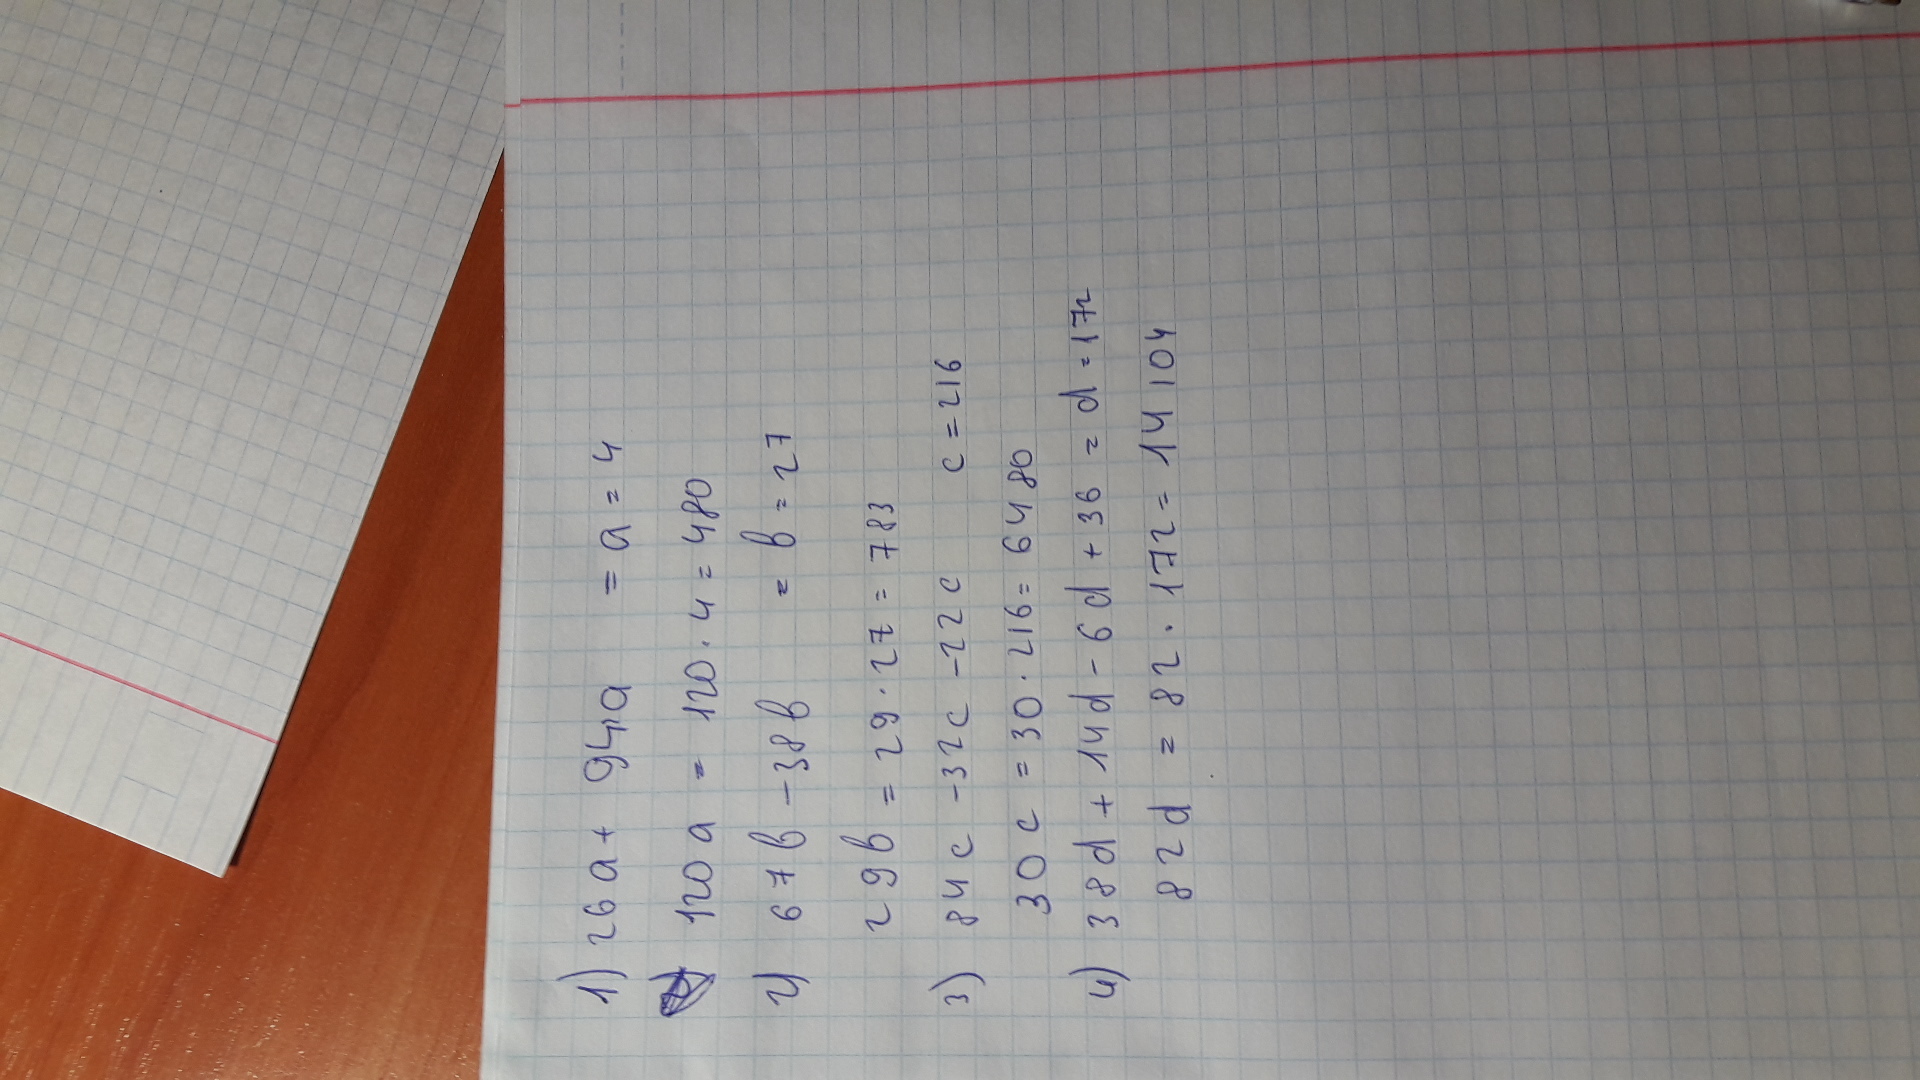 1) 26a + 94a = a = 4
120a = 120 · 4 = 480
2) 67b - 38b = b = 27
29b = 29 · 27 = 783
3) 84c - 32c - 22c c = 216
30c = 30 · 216 = 6480
4) 38d + 14d - 6d + 36 = d = 172
82d = 82 · 172 = 14104